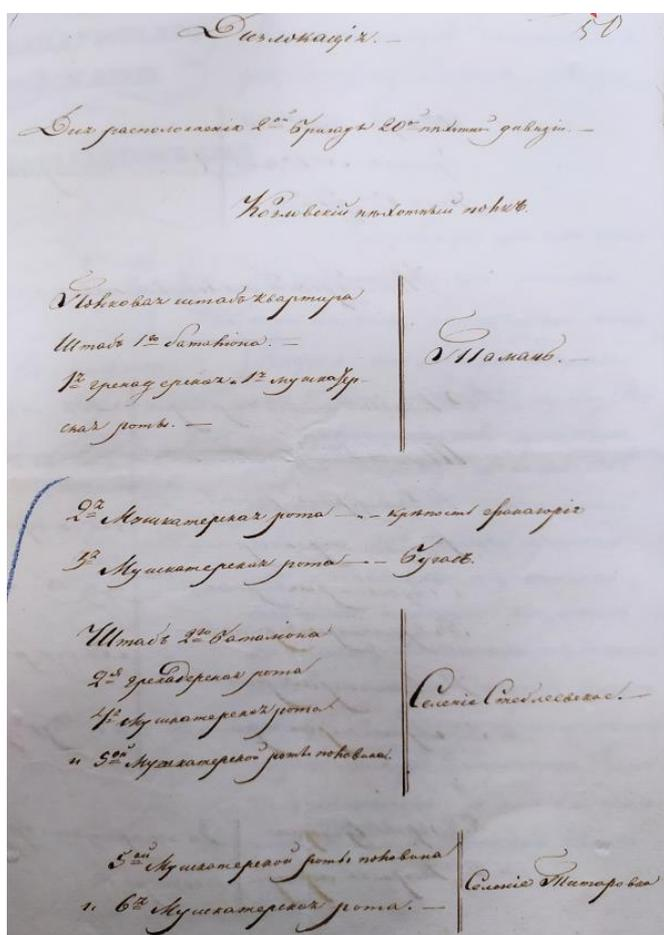 50
Дизлокацiя. —
Для расположенiя 2ой бригады 20й пѣхотной дивизiи. —
Козловскiй пѣхотный полкъ.
Полковая штабъ квартира
Штабъ 1го баталiона. —
1я гренадерская и 1я мушкатер-
ская роты. —
Тамань. —
2я Мушкатерская рота — . — крѣпость Фанагорiя
3я Мушкатерская рота — . — Бугазъ.
Штабъ 2го баталiона
2я гренадерская рота
4я Мушкатерская рота
и 5ой Мушкатерской роты половина.
Селенiе Стеблеевское. —
5ой Мушкатерской роты половина
и 6я Мушкатерская рота. —
Селенiе Титаровка